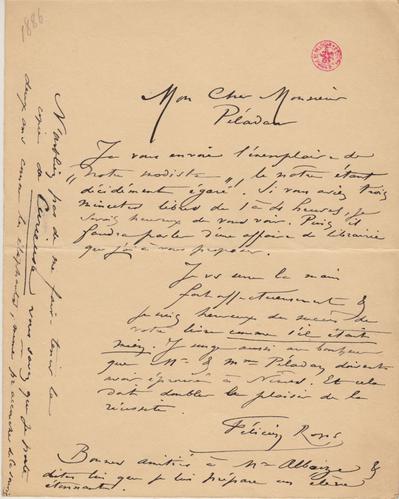 1886
Mon Cher Monsieur
Péladan
Je vous envoie l'exemplaire de
"notre modiste", le notre étant
décidément égaré. Si vous aviez trois
minutes libres de 1 à 4 heures, je
serais heureux de vous voir. Puis il
faudra parler d'une affaire de librairie
que j'ai à vous proposer.
Je vs serre la main
fort affectueusement &
je suis heureux du succès de
votre livre comme s'il était
mien. Je songe aussi au bonheur
que Mr & Mme Péladan doivent
avoir éprouvé à Nîmes. Et cela
doit doubler le plaisir de la
réussite.
Félicien Rops
Bonnes amitiés à Mr &
dites lui que je lui prépare un
étonnante.
N'oubliez pas de me faire tenir la
copie de Curieuse, vous savez que je porte
deux ans comme les éléphants, avant d'accoucher